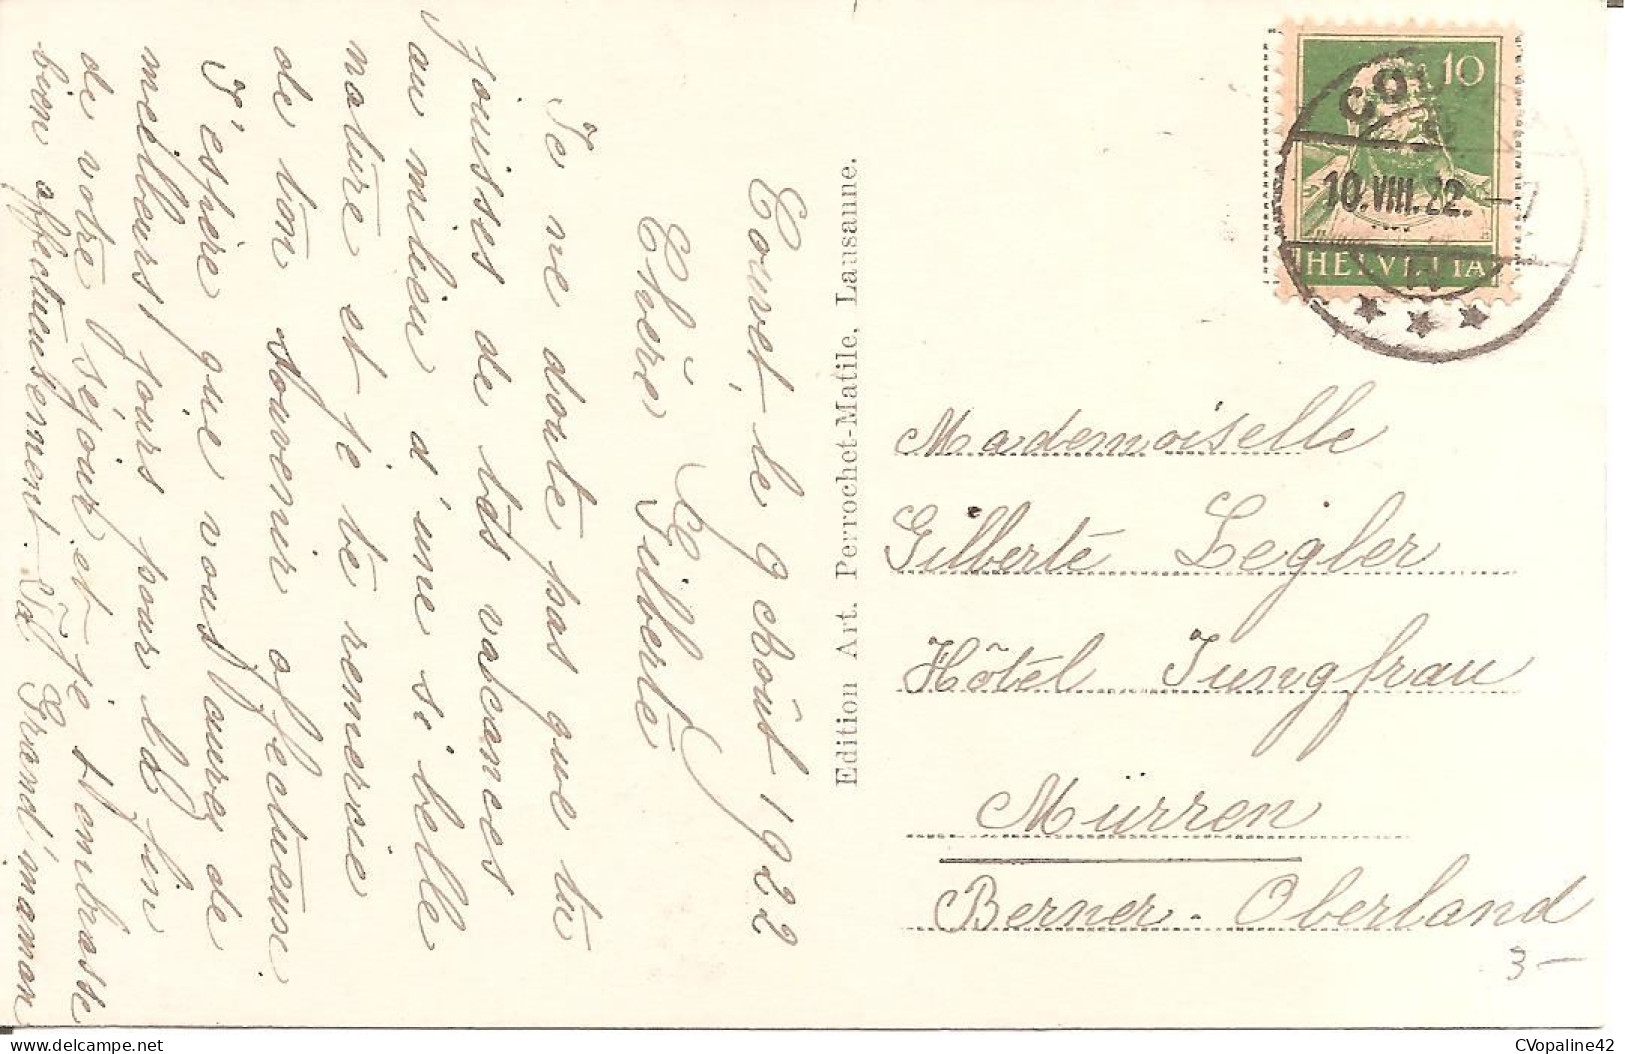 Couvet, le 9 Août 1922
Chère Gilberte
Je ne doute pas que tu
jouisses de tes vacances
au milieu d'une si belle
nature et je te remercie
de ton souvenir affectueux.
J'espère que vous aurez de
meilleurs jours pour la fin
de votre séjour et je t'embrasse
bien affectueusement. Ta Grand'maman
Edition Art. Perrochet-Matile, Lausanne.
10
HELVETIA
10.VIII.22.-7
Mademoiselle
Gilberte Legler
Hôtel Jungfrau
Mürren
Berner-Oberland
3 –
CVopaline42